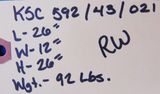 KSC 592/43/021
L- 26"
W- 12"
H- 26"
RW
Wgt.- 92 Lbs.